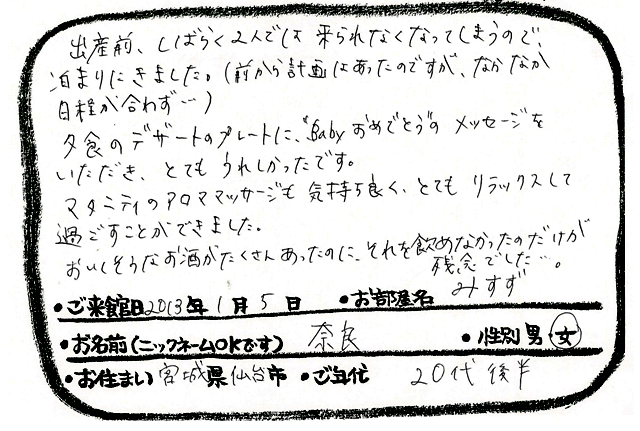 出産前、しばらく2人では来られなくなってしまうので、
泊まりにきました。(前から計画はあったのですが、なかなか
日程が合わず…)
夕食のデザートのプレートに、"Babyおめでとう"のメッセージを
いただき、とてもうれしかったです。
マタニティのアロママッサージも気持ち良く、とてもリラックスして
過ごすことができました。
おいしそうなお酒がたくさんあったのに、それを飲めなかったのだけが
残念でした…。
・ご来館日2013年1月5日 ・お部屋名 みすず
・お名前(ニックネームOKです) 奈良 ・性別 男・女
・お住まい 宮城県仙台市 ・ご年代 20代後半